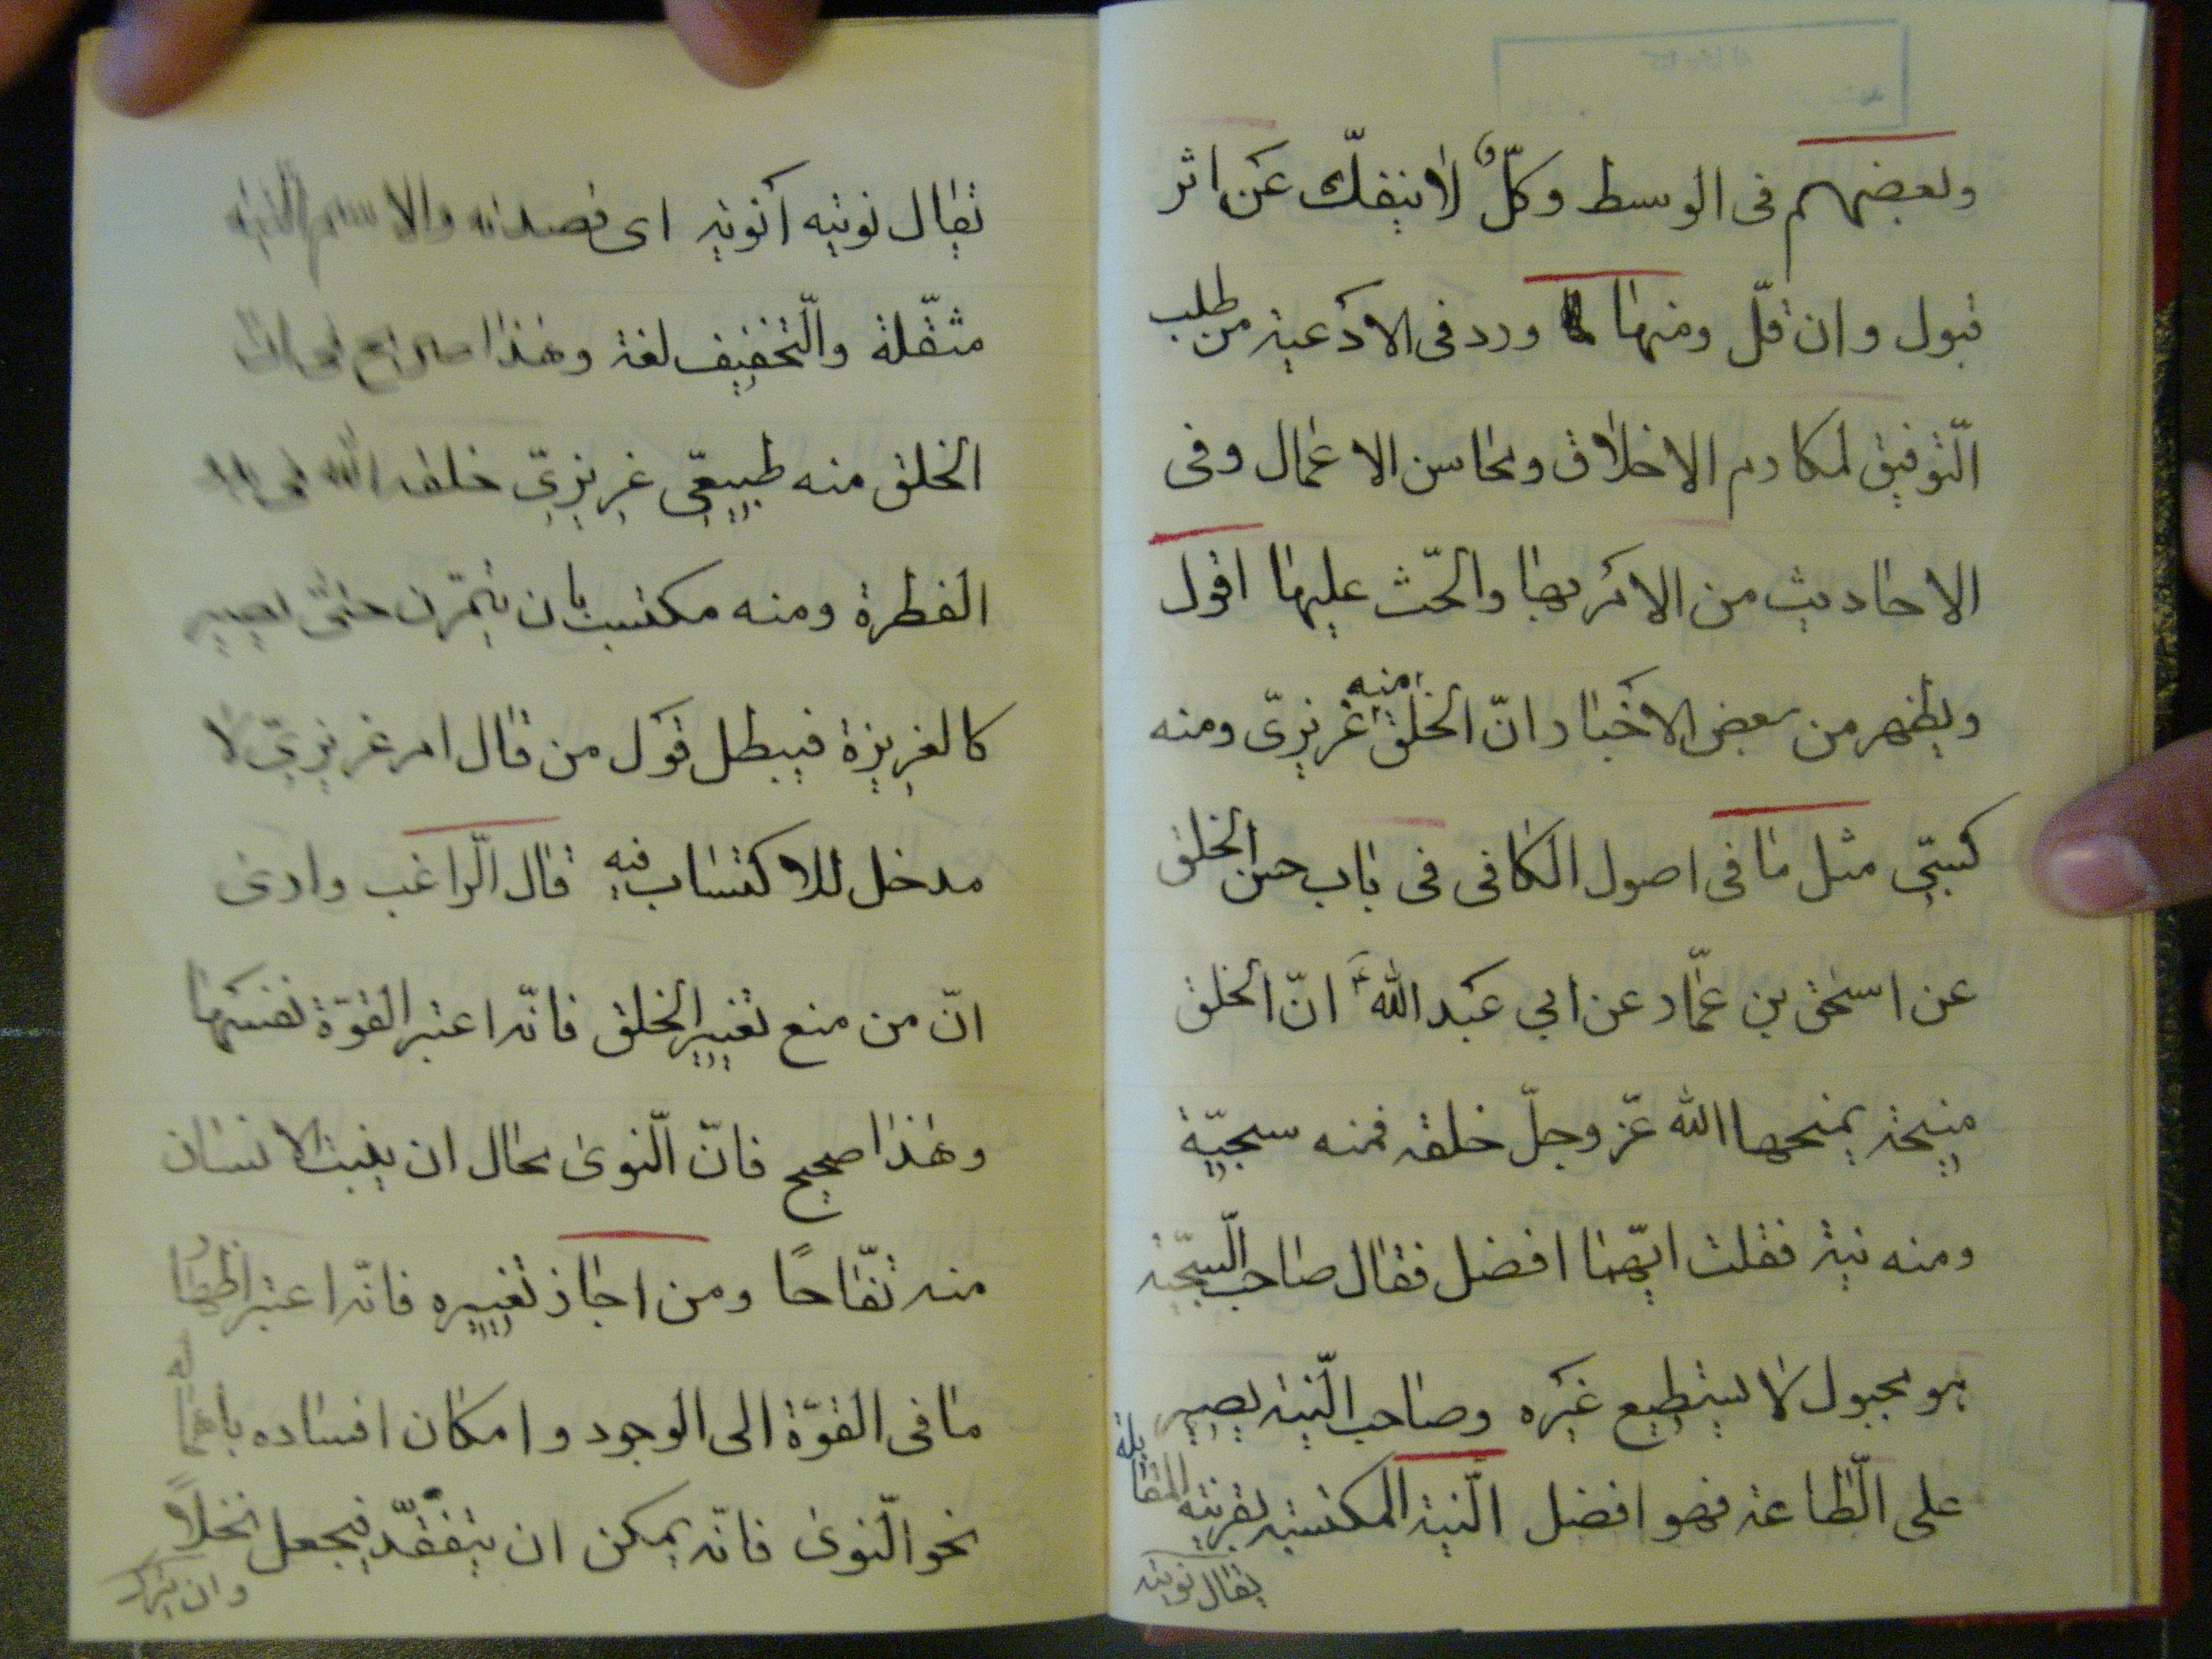 وبعضهم فى الوسط وكلّ لا ينفكّ عن اثر
قبول وان قلّ ومنها ما ورد فى الادعية من طلب
التّوفيق لمكارم الاخلاق ومحاسن الاعمال وفى
الاحاديث من الامر بها والحّث عليها اقول
ويظهر من بعض الاخبار انّ الخلق منه غريزىّ ومنه
كسبّى مثل ما فى اصول الكافى فى باب حسن الخلق
عن اسحق بن عمّار عن ابي عبد الله ع انّ الخلق
منيحة يمنحها الله عزّ وجلّ خلقه فمنه سجيّة
ومنه نية فقلت ايّهما افضل فقال صاحب السّجية
هو مجبول لا يستطيع غيره وصاحب النّية يصير
على الطّاعة فهو افضل النّية المكتسبة بقرينة المقابلة
يقال نويته
يقال نويته أنويه اى قصدته والاسم النية
مثقّلة والتّخفيف لغة وهذا صريح فى انّ
الخلق منه طبيعىّ غريزىّ خلقه الله فى
الفطرة ومنه مكتسب بان يتمرّن حتّى يصير
كالغريزة فيبطل قول من قال امر غريزىّ لا
مدخل للاكتساب فيه قال الرّاغب وارى
انّ من منع تغيير الخلق فانّه اعتبر القوّة نفسها
وهذا صحيح فانّ النّوى محال ان ينبت الانسان
منه تفّاحًا ومن اجاز تغييره فانّه اعتبر اظهار
ما فى القوّة الى الوجود وامكان افساده باهماله
نحو النّوى فانّه يمكن ان يتفقّد فيجعل نخلاً
وان يترك